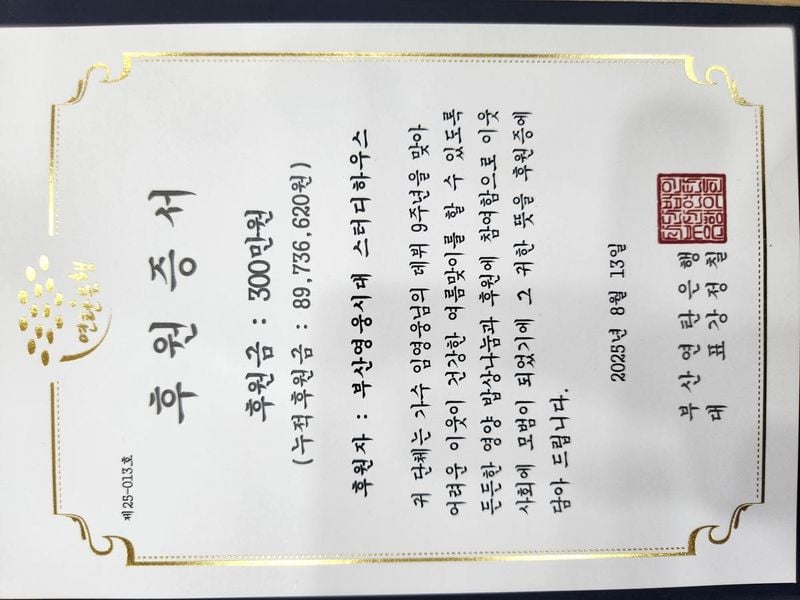 연탄은행
제25-013호
후원증서
후원금 : 300만원
(누적후원금 : 89,736,620원)
후원자 : 부산영웅시대 스터디하우스
귀 단체는 가수 임영웅님의 데뷔 9주년을 맞아
어려운 이웃이 건강한 여름맞이를 할 수 있도록
든든한 영양 밥상나눔과 후원에 참여함으로 이웃
사회에 모범이 되었기에 그 귀한 뜻을 후원증에
담아 드립니다.
2025년 8월 13일
부산연탄은행
대표 강정칠